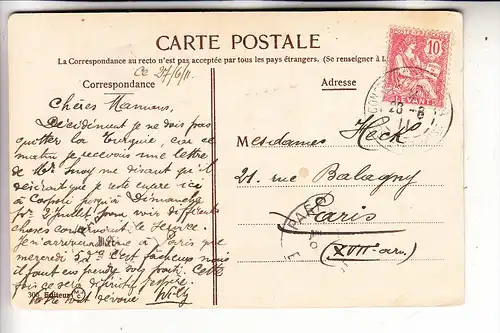 CARTE POSTALE
La Correspondance au recto n'est pas acceptée par tous les pays étrangers. (Se renseigner à l
Ce 27/6/11
Correspondance
Adresse
10
LEVANT
28 - 6
11
Chères Mamans,
Décidément je ne dois pas
quitter la Turquie, car ce
matin je recevais une lettre
de Mr me disant qu'il
désirait que je reste encore ici
à jusqu'à Dimanche
pr 2 juillet pour voir différentes
choses concernant le service.
Je n'arriverai donc à Paris que
mercredi 5. C'est fâcheux mais
il faut en prendre son parti. Cette
fois ce sera définitif j'espère.
Votre tout dévoué Willy
Mesdames Heck
21. rue Balagny
Paris
(XVIIe arr.)
PARIS
Editeur